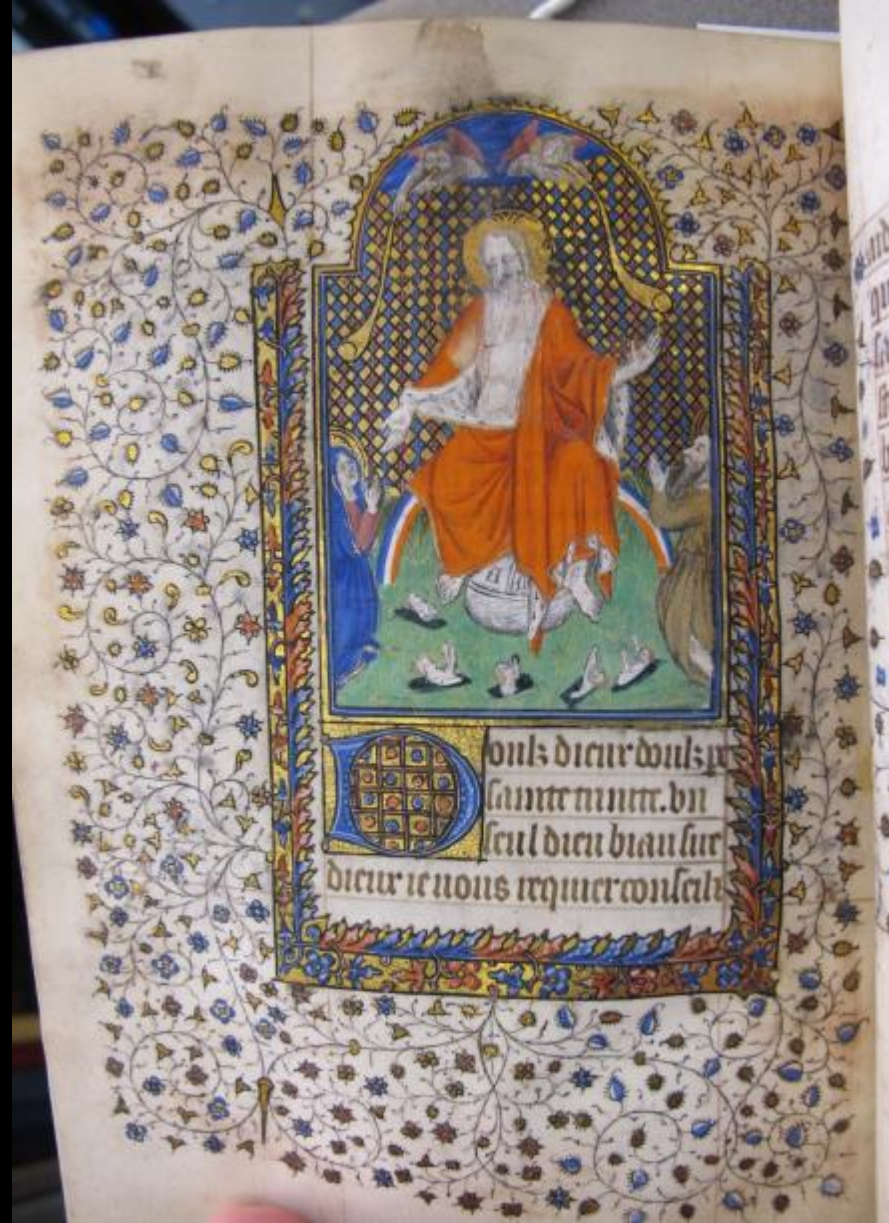 Doulz dieur doulz p
sainte trinite. vn
seul dieu biau sire
dieux ie uous requier conseil